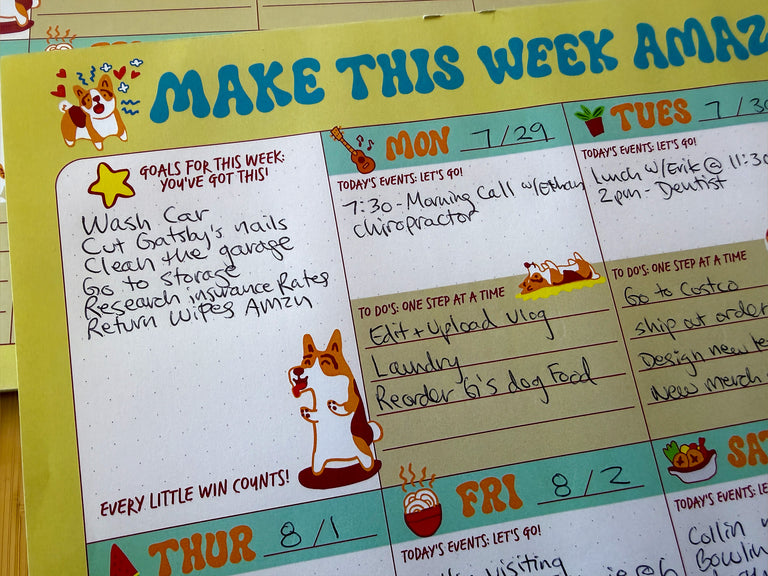 MAKE THIS WEEK
GOALS FOR THIS WEEK:
YOU'VE GOT THIS!
Wash Car
Cut Gatsby's nails
Clean the garage
Go to Storage
Research insurance Rates
Return Wipes Amzn
EVERY LITTLE WIN COUNTS!
MON 7/29
TODAY'S EVENTS: LET'S GO!
7:30 - Morning Call w/Ethan
chiropractor
TO DO'S: ONE STEP AT A TIME
Edit + Upload Vlog
Laundry
Reorder G's dog Food
TUES
TODAY'S EVENTS: LET'S GO!
Lunch w/Erik @
2pm - Dentist
TO DO'S: ONE STEP AT A TIME
Go to Costco
ship out order
Design new
New merch
THUR 8/1
FRI 8/2
TODAY'S EVENTS: LET'S GO!
visiting
TODAY'S EVENTS:
Collin
Bowlin